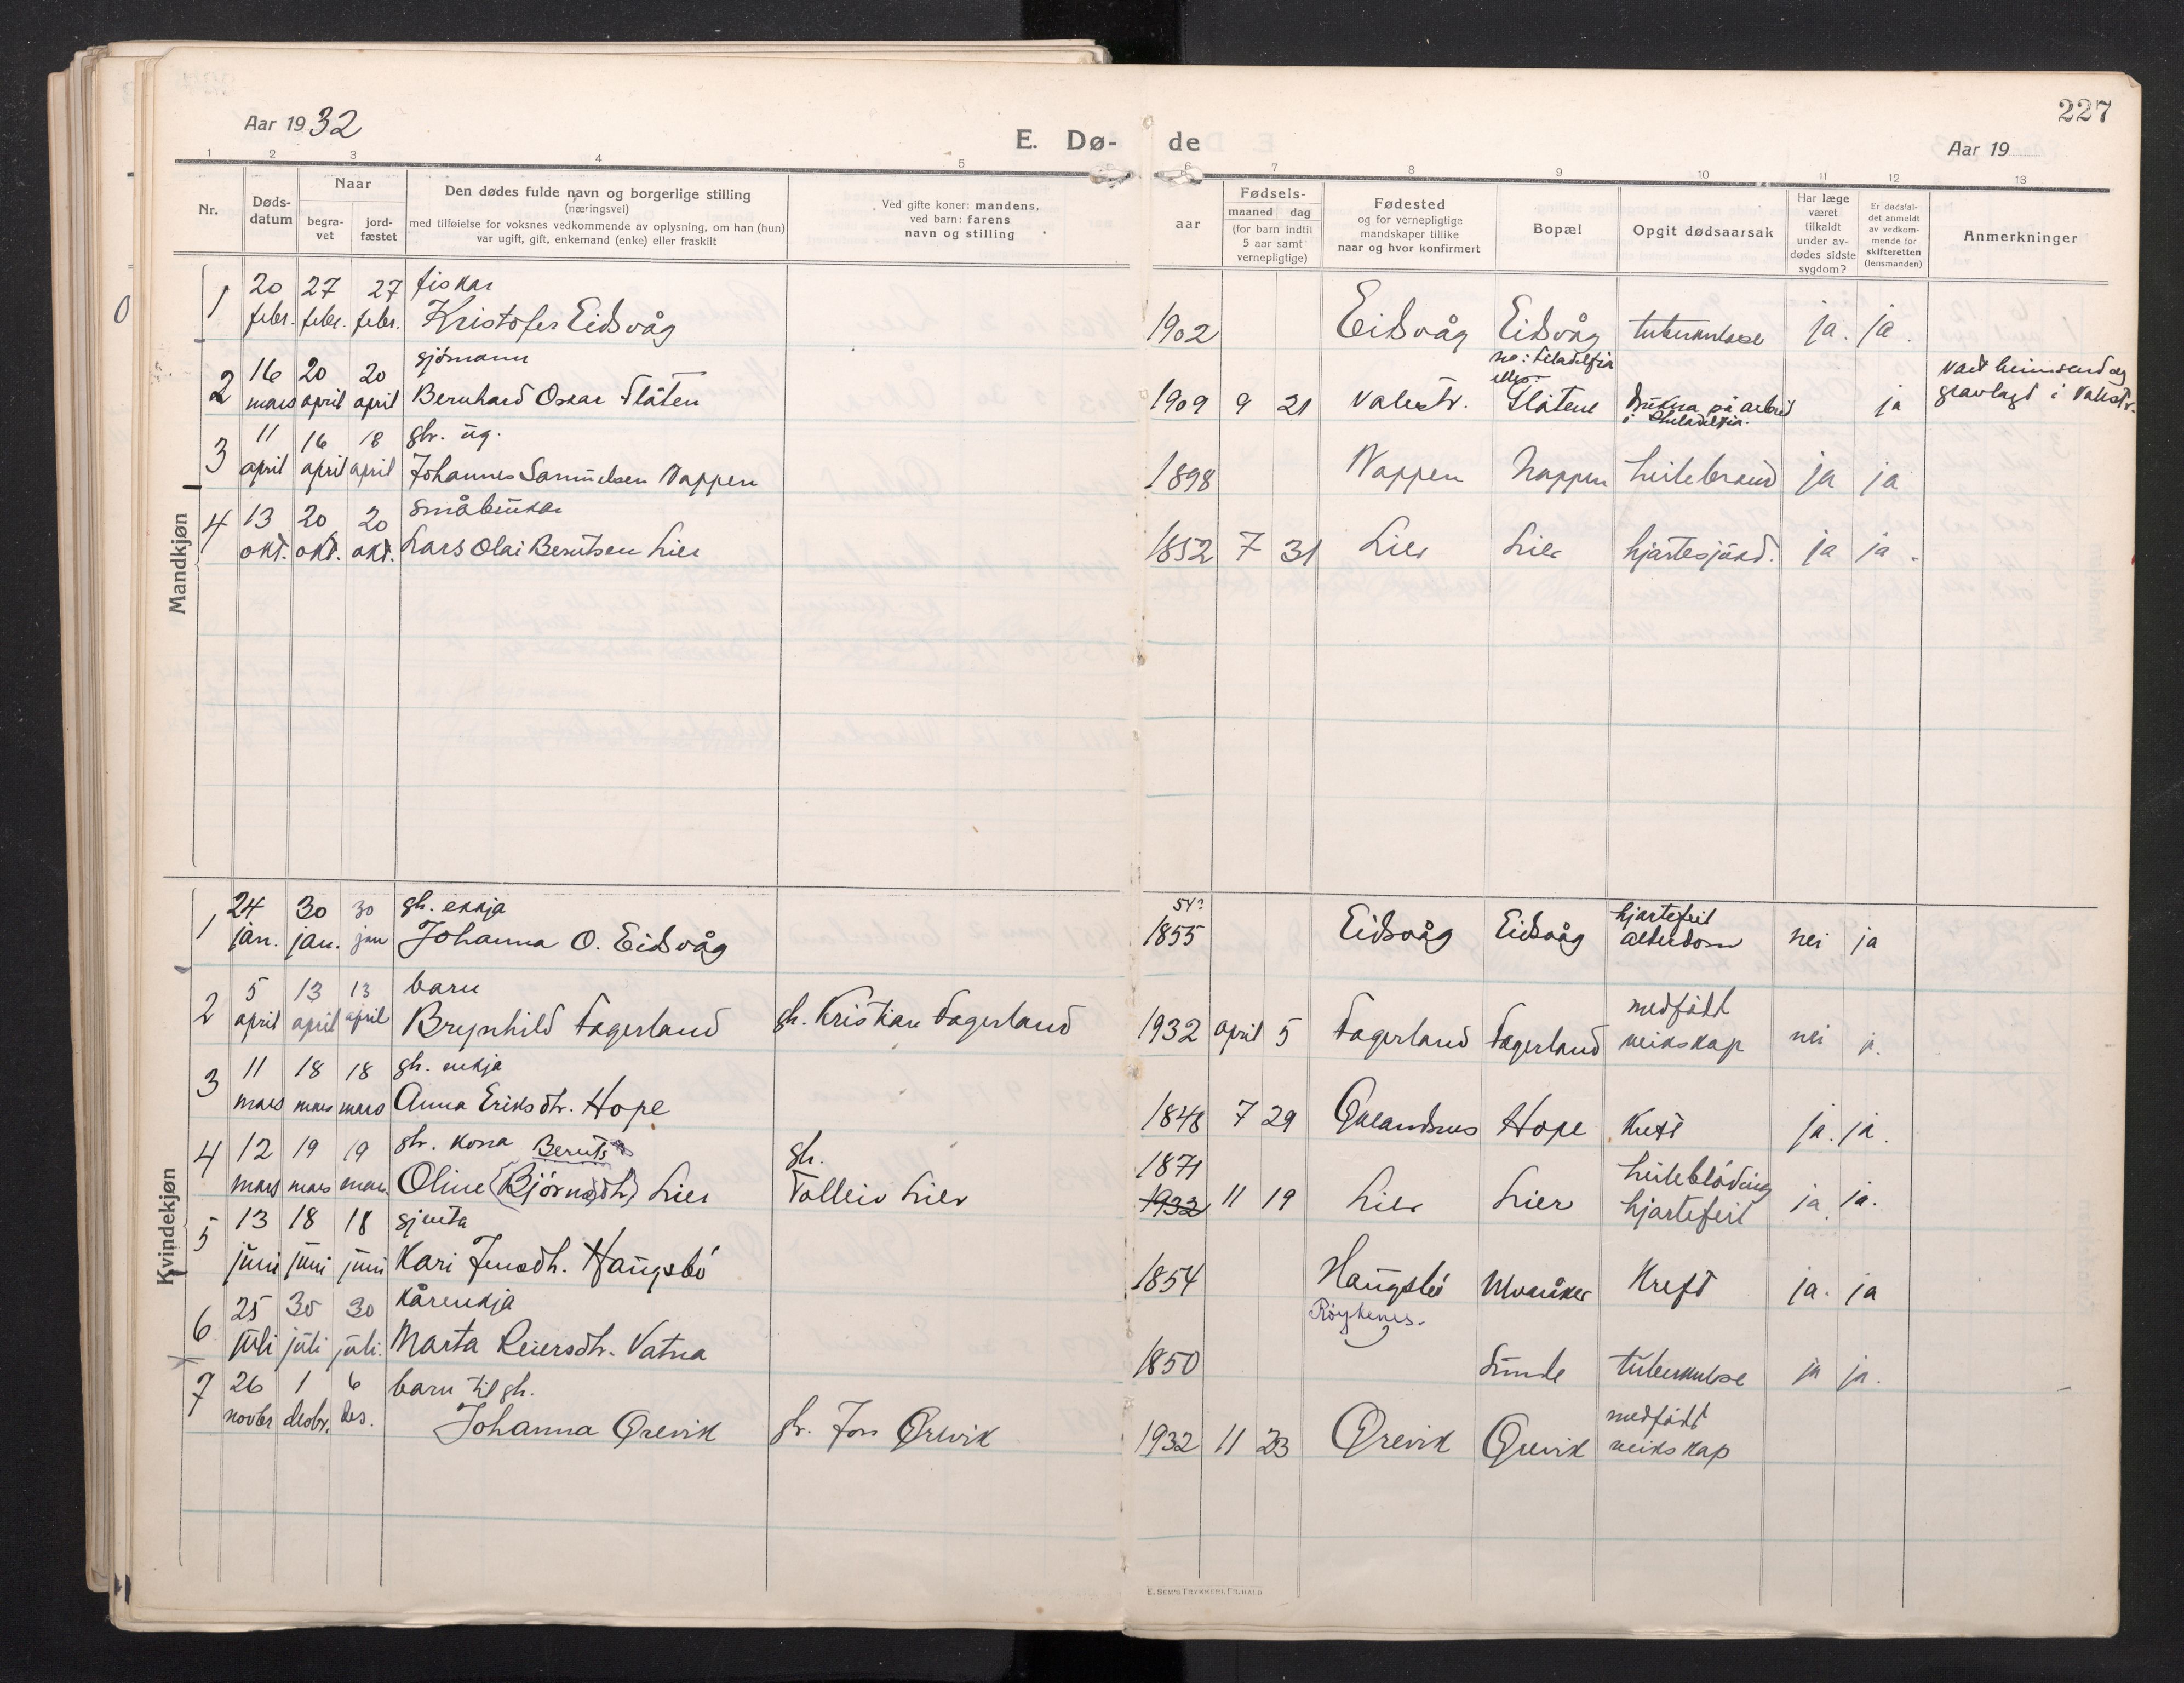 227
Aar 1932
E. Dø-
de
Aar 19
1 2 3 4 5 6 7 8 9 10 11 12 13
Nr.
Døds-
datum
Naar
begra-
vet
jord-
fæstet
Den dødes fulde navn og borgerlige stilling
(næringsvei)
med tilføielse for voksnes vedkommende av oplysning, om han (hun)
var ugift, gift, enkemand (enke) eller fraskilt
Ved gifte koner: mandens,
ved barn: farens
navn og stilling
Fødsels-
aar
maaned dag
(for barn indtil
5 aar samt
vernepligtige)
Fødested
og for vernepligtige
mandskaper tillike
naar og hvor konfirmert
Bopæl
Opgit dødsaarsak
Har læge
været
tilkaldt
under av-
dødes sidste
sygdom?
Er dødsfal-
det anmeldt
av vedkom-
mende for
skifteretten
(lensmanden)
Anmerkninger
Mandkjøn
1 20 27 27 fiskar
febr. febr. febr. Kristofer Eidsvåg 1902 Eidsvåg Eidsvåg tuberkulose ja. ja.
2 16 20 20 sjömann
mars april april Bernhard Oskar Flåten 1909 9 21 Valestr. Flåtene
drukna på arbeid
i Philadelfia.
ja
vart heimsend og
gravlagt i Valestr.
3 11 16 18 gbr. ug.
april april april Johannes Samuelsen Nappen 1898 Nappen Nappen heilebrand ja ja
4 13 20 20 småbrukar
okt. okt. okt. Lars Olai Berntsen Lier 1852 7 31 Lier Lier hjartesjukd. ja ja.
Kvindekjøn
1 24 30 30 gb. enkja
jan. jan. jan Johanna O. Eidsvåg
54?
1855 Eidsvåg Eidsvåg
hjartefeil
alderdom nei ja
2 5 13 13 barn
april april april Brynhild Fagerland gb. Kristian Fagerland 1932 april 5 Fagerland Fagerland
medfödt
veikskap nei j.
3 11 18 18 gb. enkja
mars mars mars Anna Eriksdtr. Hope 1848 7 29 Øklandsnes Hope Kreft ja. ja.
4 12 19 19 gbr. kona Bernts
mars mars mars Oline (Björnsdtr) Lier
gb.
Tolleiv Lier
1871
1932 11 19 Lier Lier
heileblöding
hjartefeil ja. ja.
5 13 18 18 gjenta
juni juni juni Kari Jensdtr. Haugsbö 1854 Haugsbö Ulvanåker Kreft ja. ja
Röyksenes.
6 25 30 30 kårenkja
juli juli juli. Marta Reiersdtr. Vatna 1850 Sunde tuberkulose ja ja.
7 26 1 6 barn til gb.
novbr desbr. des. Johanna Örevik gb. Jon Örevik 1932 11 23 Örevik Örevik
medfödt
veikskap
E. SEM'S TRYKKERI, F.R.HALD